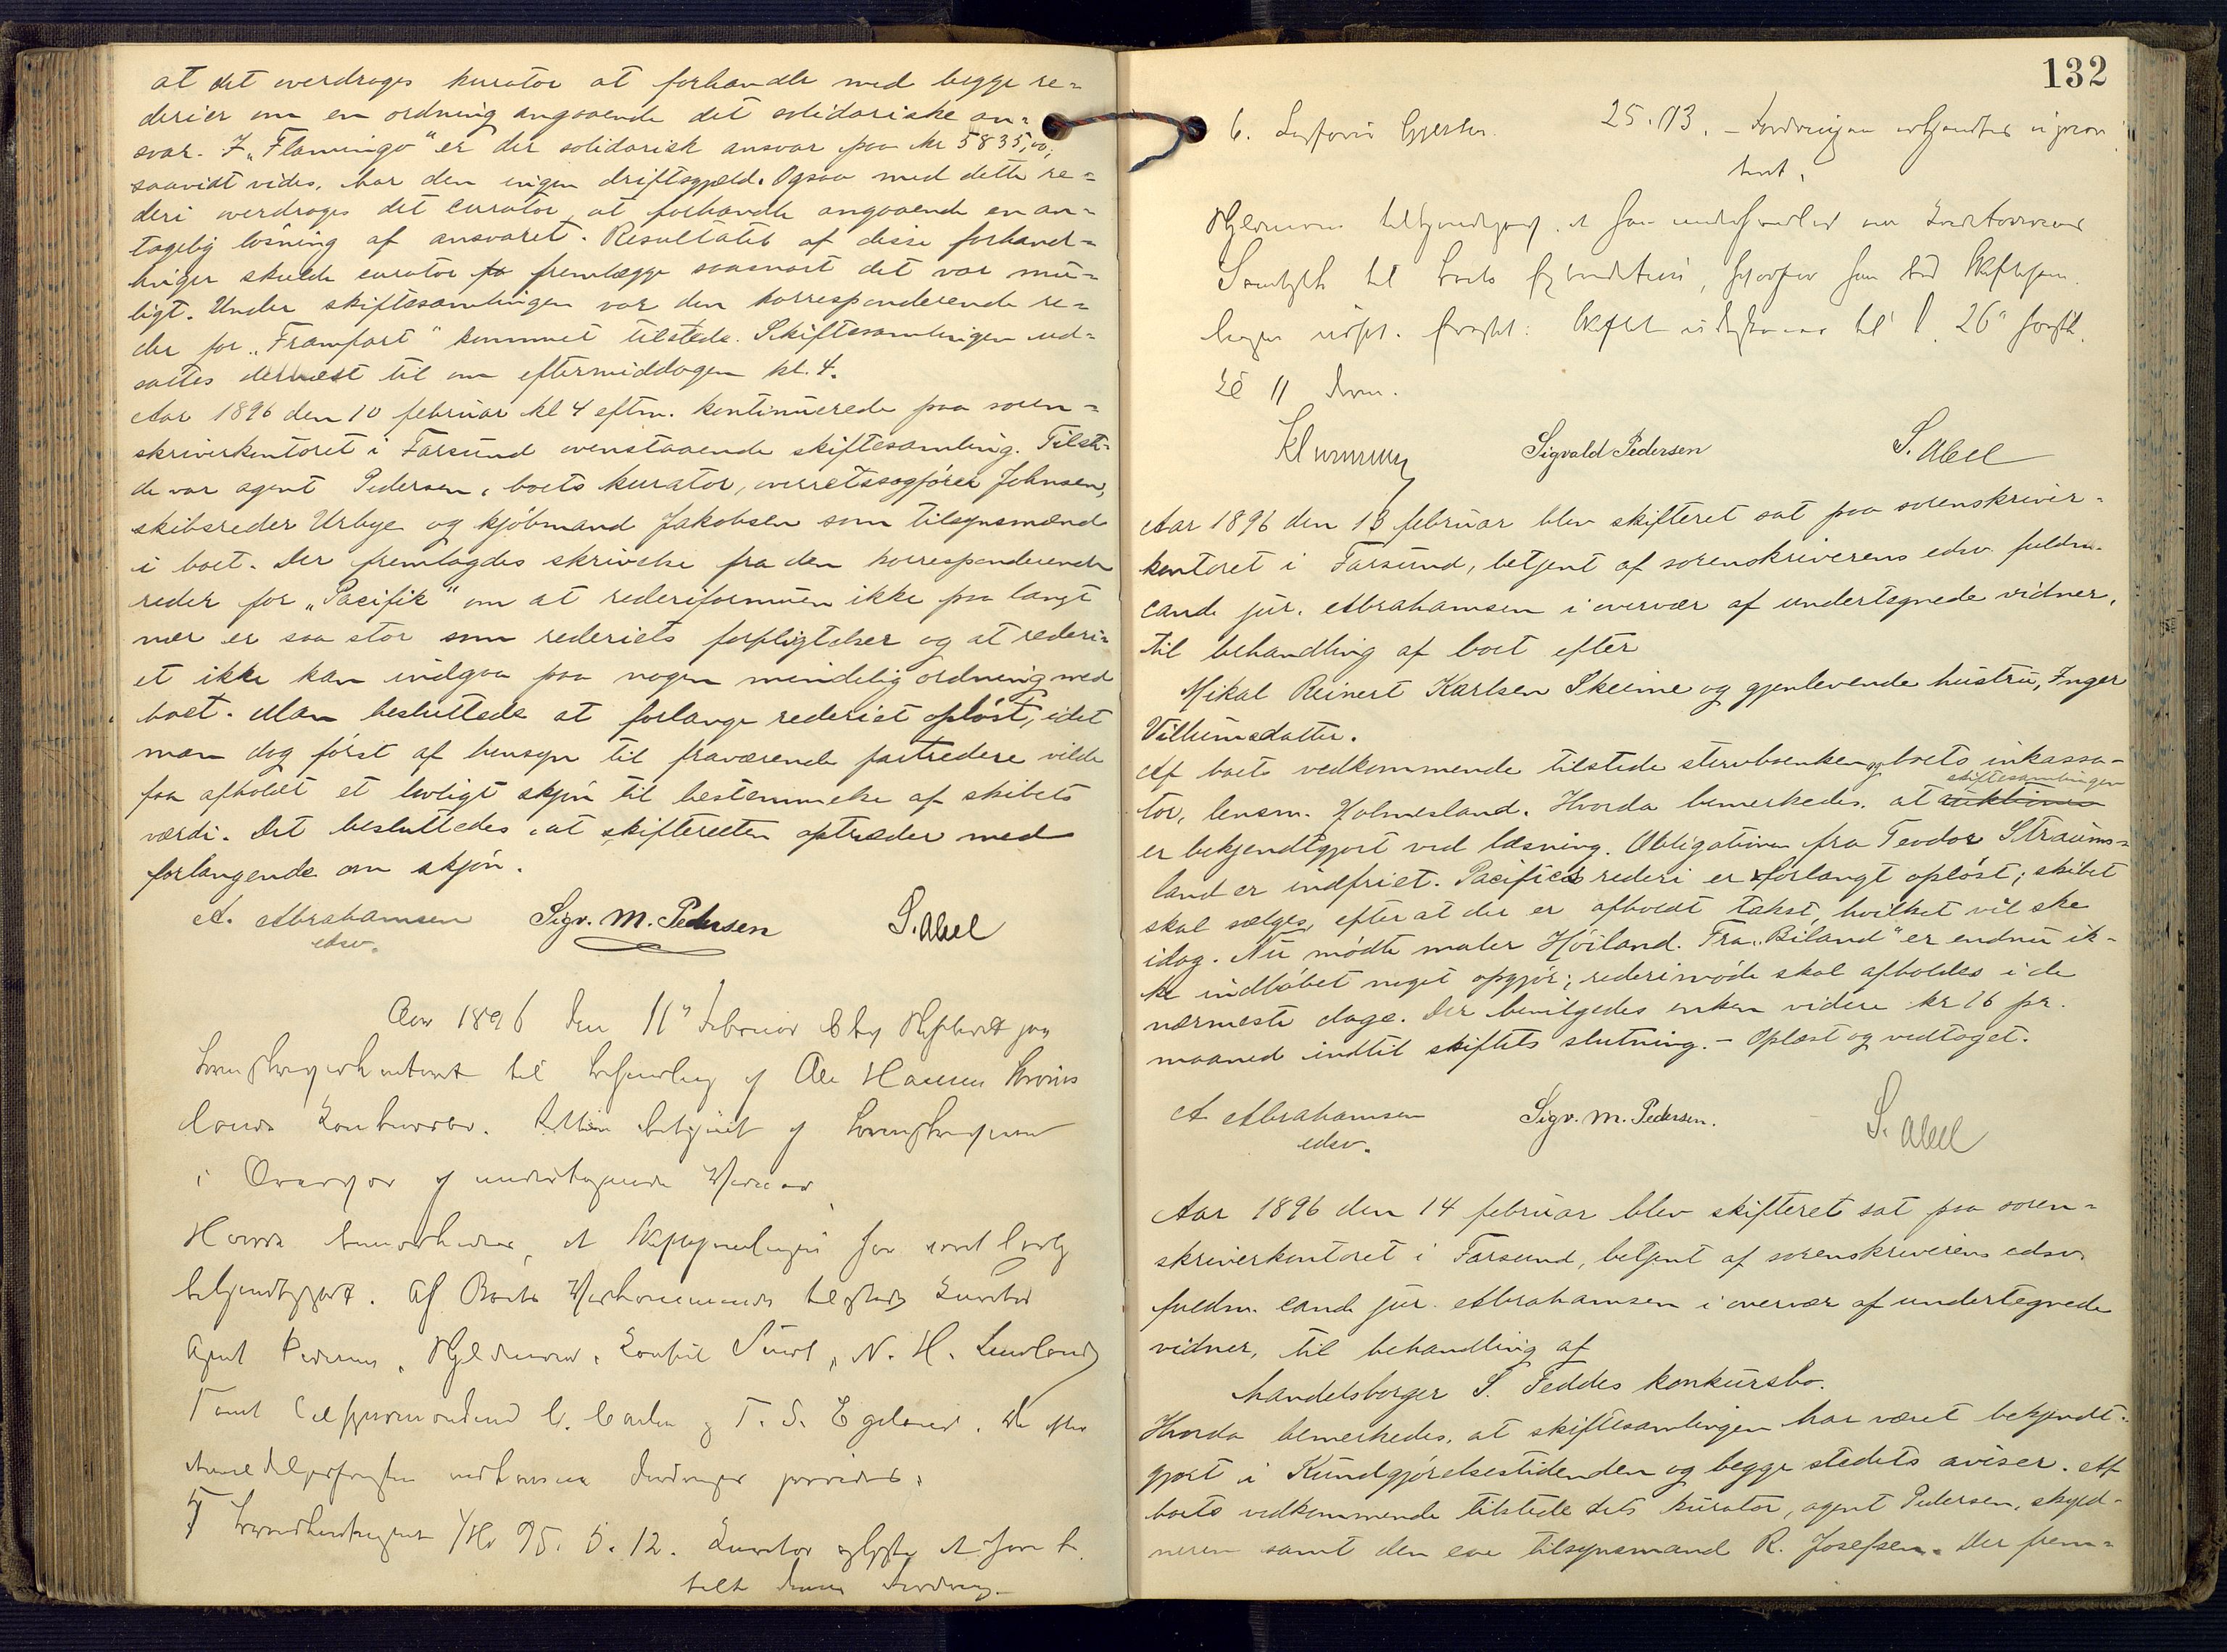 at det overdroges kurator at forhandle med begge re-
derier om en ordning angaaende det solidariske an-
svar. I „Flamingo" er der solidarisk ansvar paa kr 5835,00;
saavidt vides, har den ingen driftsgjæld. Ogsaa med dette re-
deri overdroges det curator at forhandle angaaende en an-
tagelig løsning af ansvaret. Resultatet af disse forhand-
linger skulde curator fremlægge saasnart det var mu-
ligt. Under skiftesamlingen var den korresponderende re-
der for „Framfart" kommet tilstede. Skiftesamlingen ud-
sattes dernæst til om eftermiddagen kl. 4.
Aar 1896 den 10 februar kl 4 eftm. kontinuerede paa soren-
skriverkontoret i Farsund ovenstaaende skiftesamling. Tilste-
de var agent Pedersen, boets kurator, overretssagfører Johnsen,
skibsreder Urbye og kjøbmand Jakobsen som tilsynsmænd
i boet. Der fremlagdes skrivelse fra den korresponderende
reder for „Pacifik" om at rederiformuen ikke paa langt
nær er saa stor som rederiets forpligtelser og at rederi-
et ikke kan indgaa paa nogen mindelig ordning med
boet. Man besluttede at forlange rederiet opløst, idet
man dog først af hensyn til fraværende partredere vilde
faa afholdt et lovligt skjøn til bestemmelse af skibets
værdi. Det besluttedes, at skifteretten optræder med
forlangende om skjøn.
A. Abrahamsen Sigv. M. Pedersen S. Abel
edsv.
Aar 1896 den 11te Februar blev Skifteret paa
Sorenskriverkontoret til Behandling af Ole Hansen
Konkursbo. Retten betjent af Sorenskriveren
i Overvær af undertegnede Vidner
Hvorda bemerkedes, at Skiftesamlingen har været lovlig
bekjendtgjort. Af Boets Vedkommende tilstede Kurator
Agent Pedersen, Skyldneren, Konsul Sundt, N. H.
samt Tilsynsmændene C. og T. S. Egeland. De efter
95. 5. 12. Kurator oplyste at have be-
talt denne Fordring.
132
6. 25. 13. - Fordringen
Skyldneren at han
Samtykke til Boets
til d. 26de
Kl 11 Form.
Sigvald Pedersen S. Abel
Aar 1896 den 13 februar blev skifteret sat paa sorenskriver-
kontoret i Farsund, betjent af sorenskriverens edsv. fuldm.
cand. jur. Abrahamsen i overvær af undertegnede vidner,
til behandling af boet efter
Mikal Reinert Karlsen Skeime og gjenlevende hustru, Inger
Villumsdatter.
Af boets vedkommende tilstede stervboenken og boets inkassa-
tor, lensm. Holmesland. Hvorda bemerkedes, at auktionen skiftesamlingen
er bekjendtgjort ved læsning. Obligationen fra Teodor Straums-
land er indfriet. Pacifics rederi er forlangt opløst; skibet
skal sælges, efter at der er afholdt takst, hvilket vil ske
idag. Nu mødte maler Høiland. Fra „Biland" er endnu ik-
ke indløbet noget opgjør; rederimøde skal afholdes i de
nærmeste dage. Der bevilgedes enken videre kr 16 pr.
maaned indtil skiftets slutning. - Oplæst og vedtaget.
A Abrahamsen Sigv. M. Pedersen. S. Abel
edsv.
Aar 1896 den 14 februar blev skifteret sat paa soren-
skriverkontoret i Farsund, betjent af sorenskriverens edsv.
fuldm. cand. jur. Abrahamsen i overvær af undertegnede
vidner, til behandling af
handelsborger S. Feddes konkursbo.
Hvorda bemerkedes, at skiftesamlingen har været bekjendt-
gjort i Kundgjørelsestidenden og begge stedets aviser. Af
boets vedkommende tilstede dets kurator, agent Pedersen, skyld-
neren samt den ene tilsynsmand R. Josefsen. Der frem-